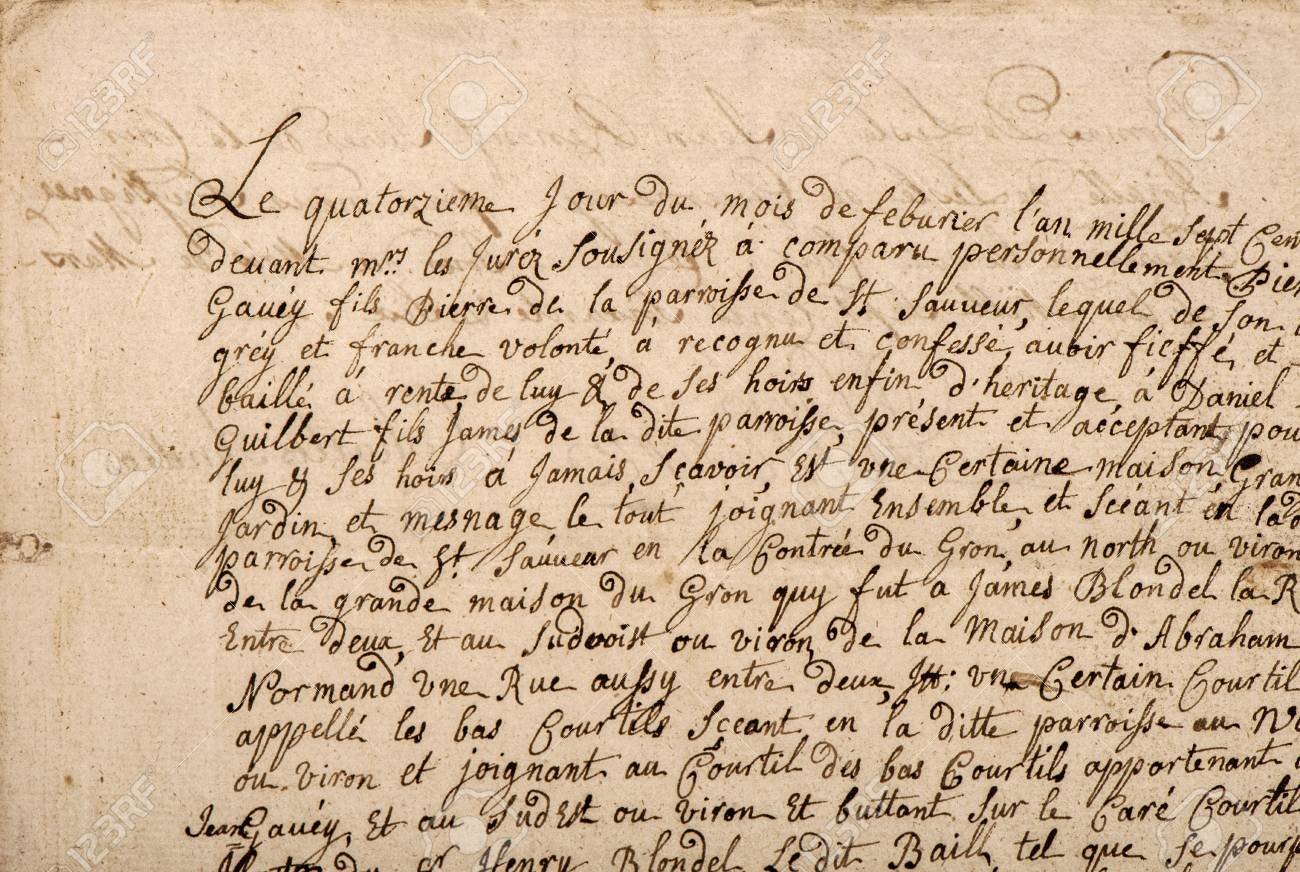 Le quatorzieme Jour du mois de feburier l'an mille sept Cen
devant mrs les Juréz Sousignéz à comparu personnellement Pier
Gavéy fils Pierre de la parroisse de St Sauveur, lequel de son
gréy et franche volonté, à recognu et confessé, avoir fieffé, et
baillé à rente de luy & de ses hoirs enfin d'heritage à Daniel
Guilbert fils James de la dite parroisse, présent et acceptant pou
luy & ses hoirs à Jamais, sçavoir, Est une Certaine maison, Gran
Jardin et mesnage le tout joignant Ensemble, et scéant en la d
parroisse de St. Sauveur en la Contrée du Gron, au north ou viron
de la grande maison du Gron quy fut a James Blondel la R
Entre deux, Et au Sudvoist ou viron, de la Maison d'Abraham
Normand une Rue aussy entre deux, Itt: un Certain Courtil
appellé les bas Courtils sçeant en la ditte parroisse au No
ou viron et joignant au Courtil des bas Courtils appartenant
Jean Gavéy, Et au Sud Est ou viron Et buttant sur le Caré Courtil
du Sr Henry Blondel Ledit Bail tel que se pourp
123RF